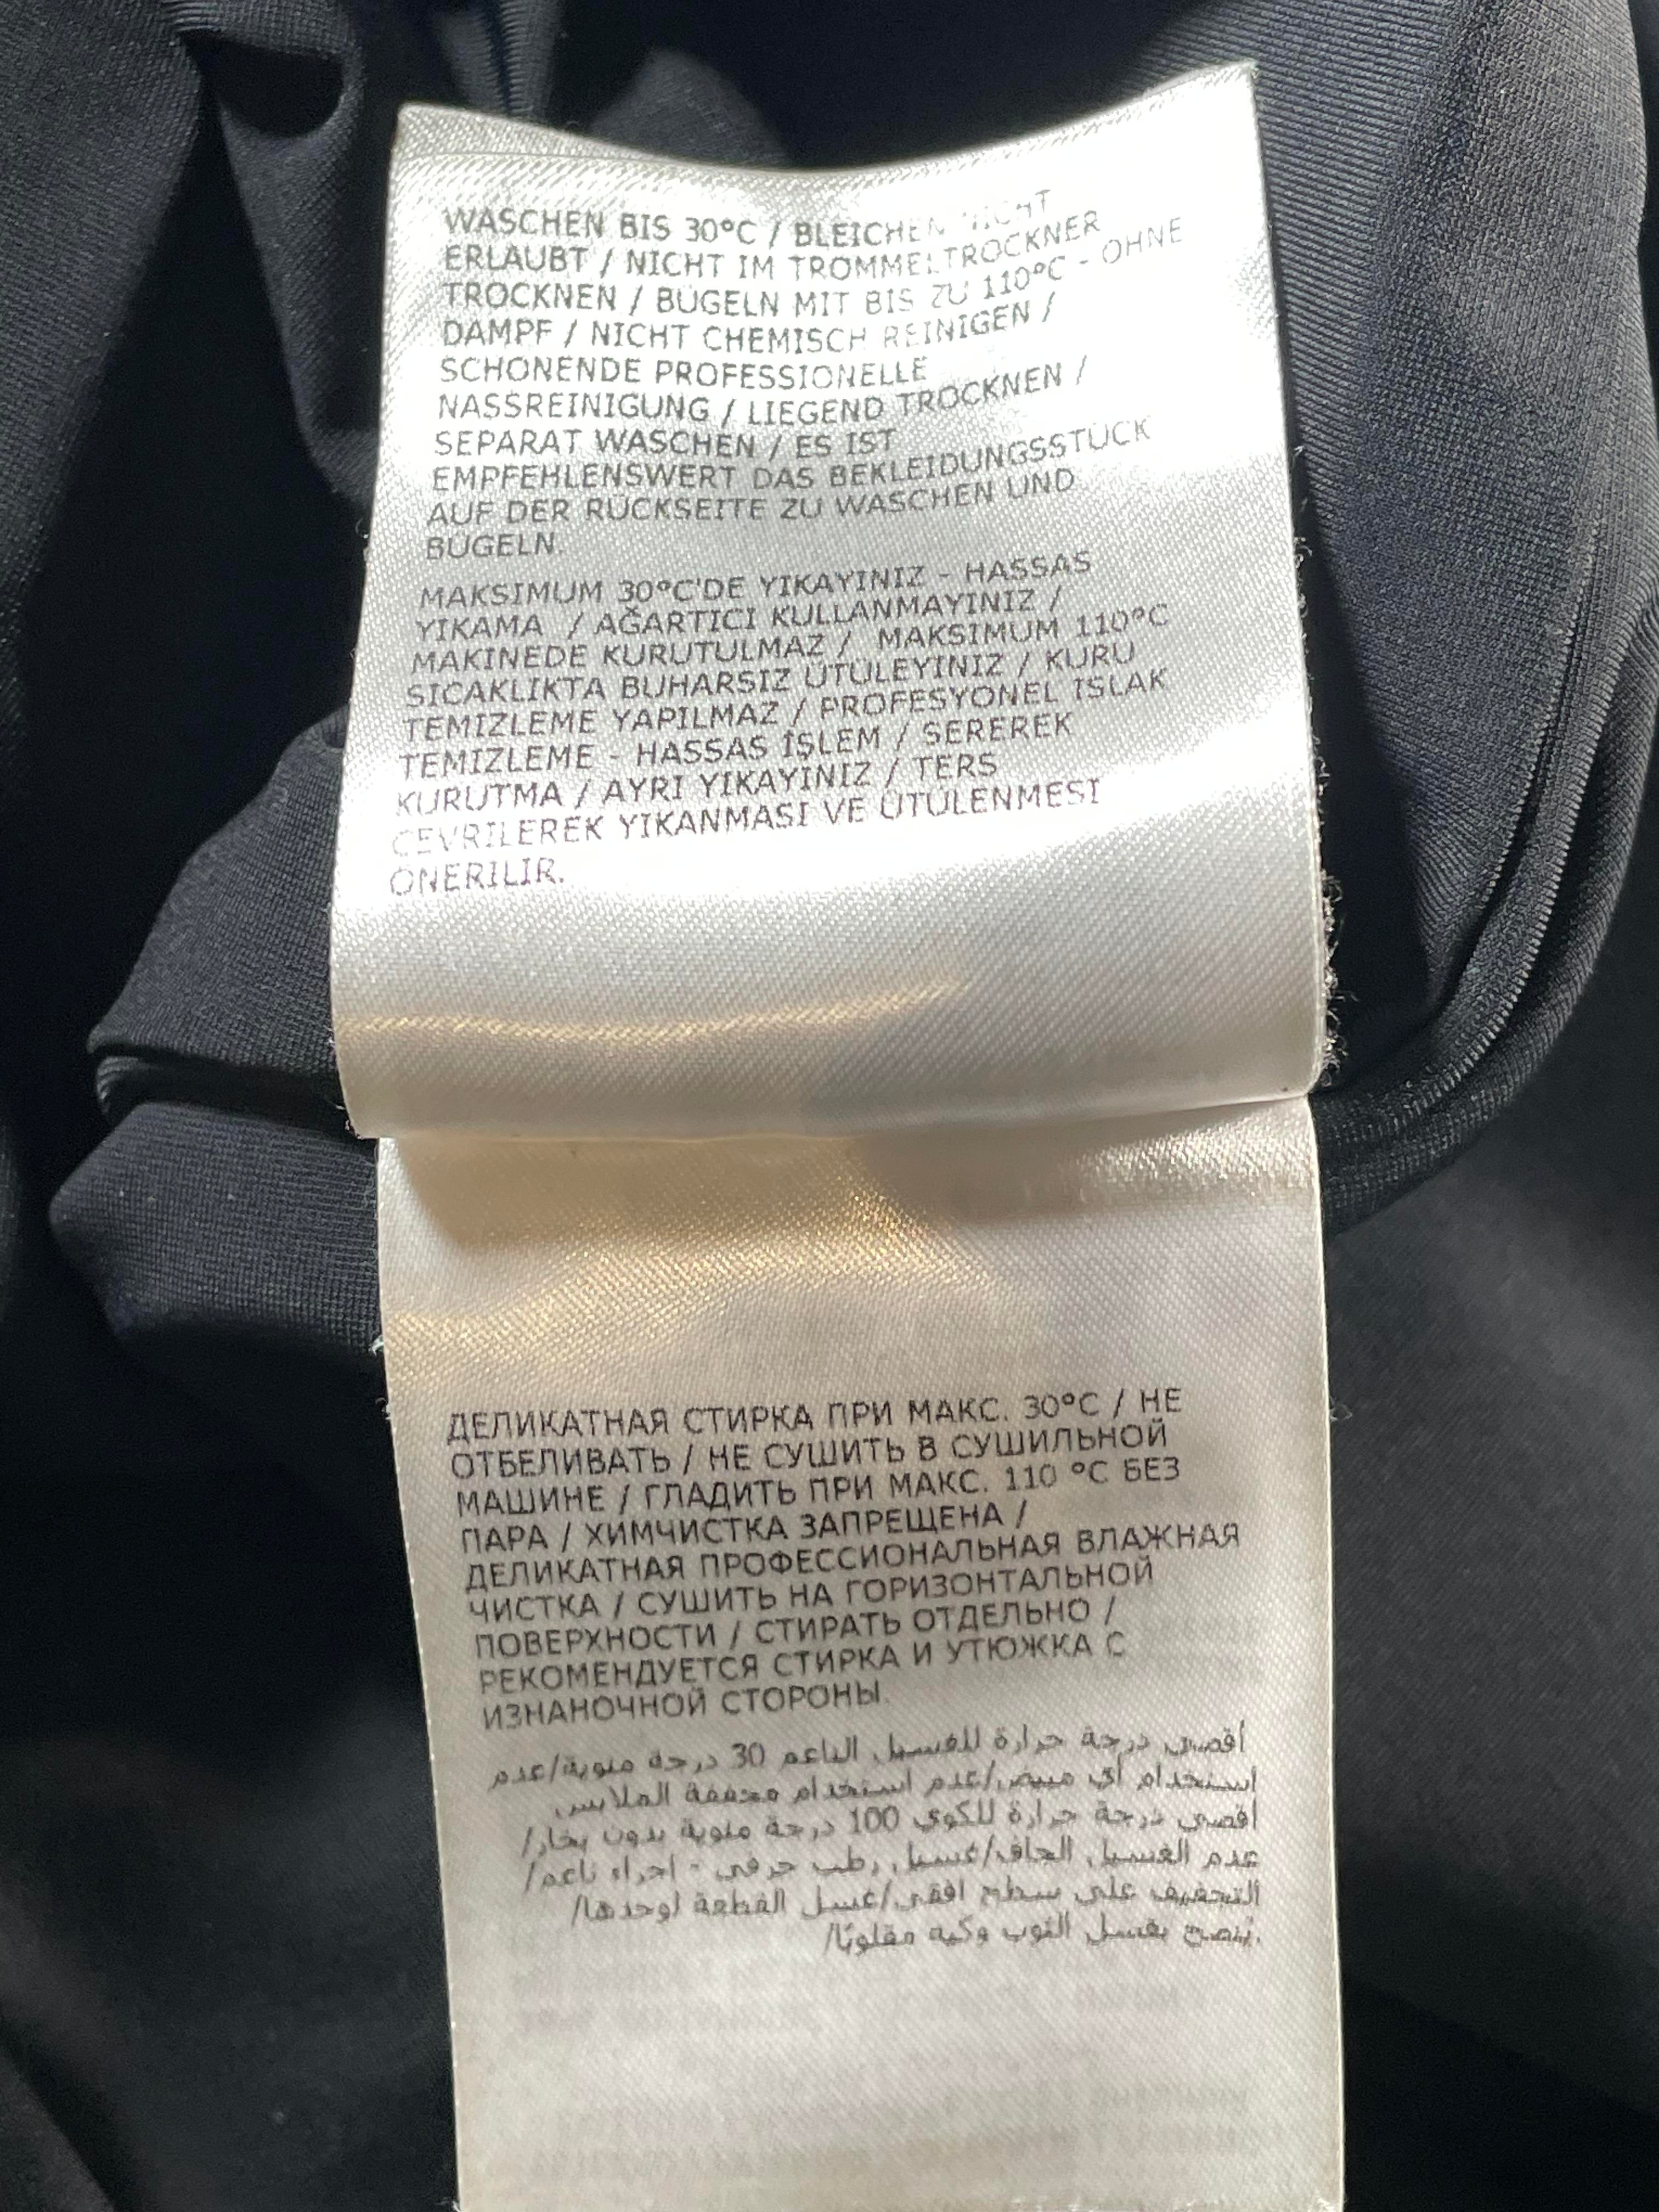 WASCHEN BIS 30°C / BLEICHEN NICHT
ERLAUBT / NICHT IM TROMMELTROCKNER
TROCKNEN / BÜGELN MIT BIS ZU 110°C - OHNE
DAMPF / NICHT CHEMISCH REINIGEN /
SCHONENDE PROFESSIONELLE
NASSREINIGUNG / LIEGEND TROCKNEN /
SEPARAT WASCHEN / ES IST
EMPFEHLENSWERT DAS BEKLEIDUNGSSTÜCK
AUF DER RÜCKSEITE ZU WASCHEN UND
BÜGELN.
MAKSIMUM 30°C'DE YIKAYINIZ - HASSAS
YIKAMA / AĞARTICI KULLANMAYINIZ /
MAKINEDE KURUTULMAZ / MAKSIMUM 110°C
SICAKLIKTA BUHARSIZ ÜTÜLEYINIZ / KURU
TEMIZLEME YAPILMAZ / PROFESYONEL ISLAK
TEMIZLEME - HASSAS İŞLEM / SEREREK
KURUTMA / AYRI YIKAYINIZ / TERS
ÇEVRILEREK YIKANMASI VE ÜTÜLENMESI
ÖNERILIR.
ДЕЛИКАТНАЯ СТИРКА ПРИ МАКС. 30°C / НЕ
ОТБЕЛИВАТЬ / НЕ СУШИТЬ В СУШИЛЬНОЙ
МАШИНЕ / ГЛАДИТЬ ПРИ МАКС. 110 °C БЕЗ
ПАРА / ХИМЧИСТКА ЗАПРЕЩЕНА /
ДЕЛИКАТНАЯ ПРОФЕССИОНАЛЬНАЯ ВЛАЖНАЯ
ЧИСТКА / СУШИТЬ НА ГОРИЗОНТАЛЬНОЙ
ПОВЕРХНОСТИ / СТИРАТЬ ОТДЕЛЬНО /
РЕКОМЕНДУЕТСЯ СТИРКА И УТЮЖКА С
ИЗНАНОЧНОЙ СТОРОНЫ.
أقصى درجة حرارة للغسيل الناعم 30 درجة مئوية/عدم
استخدام أي مبيض/عدم استخدام مجففة الملابس
أقصى درجة حرارة للكوي 100 درجة مئوية بدون بخار/
عدم الغسيل الجاف/غسيل رطب حرفي - اجراء ناعم/
التجفيف على سطح افقي/غسل القطعة لوحدها/
يُنصح بغسل الثوب وكيه مقلوبًا/.